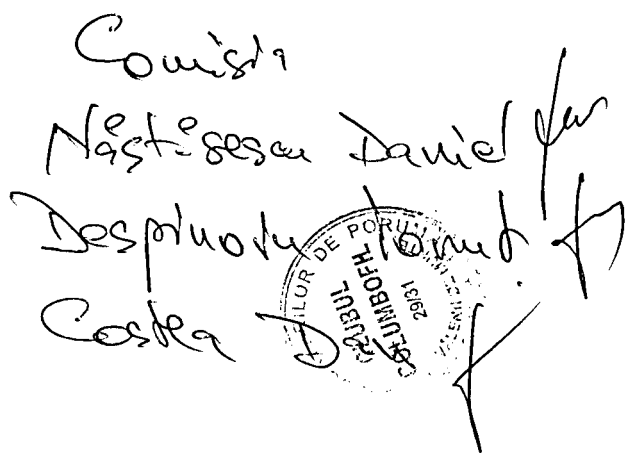 Comisia
Năstăsescu Daniel
Despinoiu Ionuț
Costea D
ILOR DE PORU
CLUBUL
COLUMBOFIL
29/31
VALENII DE M